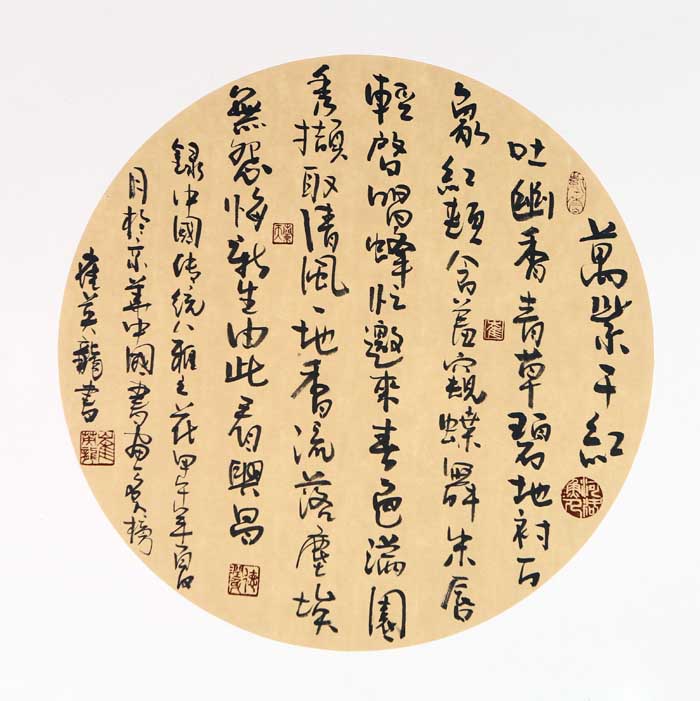 萬紫千紅
吐幽香青草碧地衬万
象紅頰含羞窺蝶舞朱唇
輕啓唱蜂忙邀來春色滿園
秀擷取清風一地香流落塵埃
無怨悔新生由此看興昌
錄中國传统八雅之花甲午年
月於京華中國書畫
崔英龍書